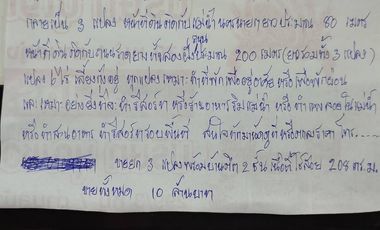 กลายเป็น 3 แปลง หน้าที่ดินติดกับแม่น้ำนครนายกยาวประมาณ 80 เมตร
หน้าที่ดินติดกับถนนลาดยางทั้งสองฝั่งประมาณ 200 เมตร (ยาวรวมทั้ง 3 แปลง)
แปลง 6 ไร่ เลี้ยงกุ้งอยู่ ทุกแปลงเหมาะทำที่พักเพื่ออยู่อาศัย หรือเพื่อพักผ่อน
และเหมาะอย่างยิ่งที่จะทำรีสอร์ทา หรือร้านอาหารริมแม่น้ำ หรือทำแพลอยในแม่น้ำ
หรือทำสวนอาหาร ทำรีสอร์ทรอบพื้นที่ สนใจมาดูที่หรือตกลงราคา โทร.......
ขายยก 3 แปลงพร้อมบ้านตึก 2 ชั้น เนื้อที่ใช้สอย 208 ตร.ม.
ขายทั้งหมด 10 ล้านบาท